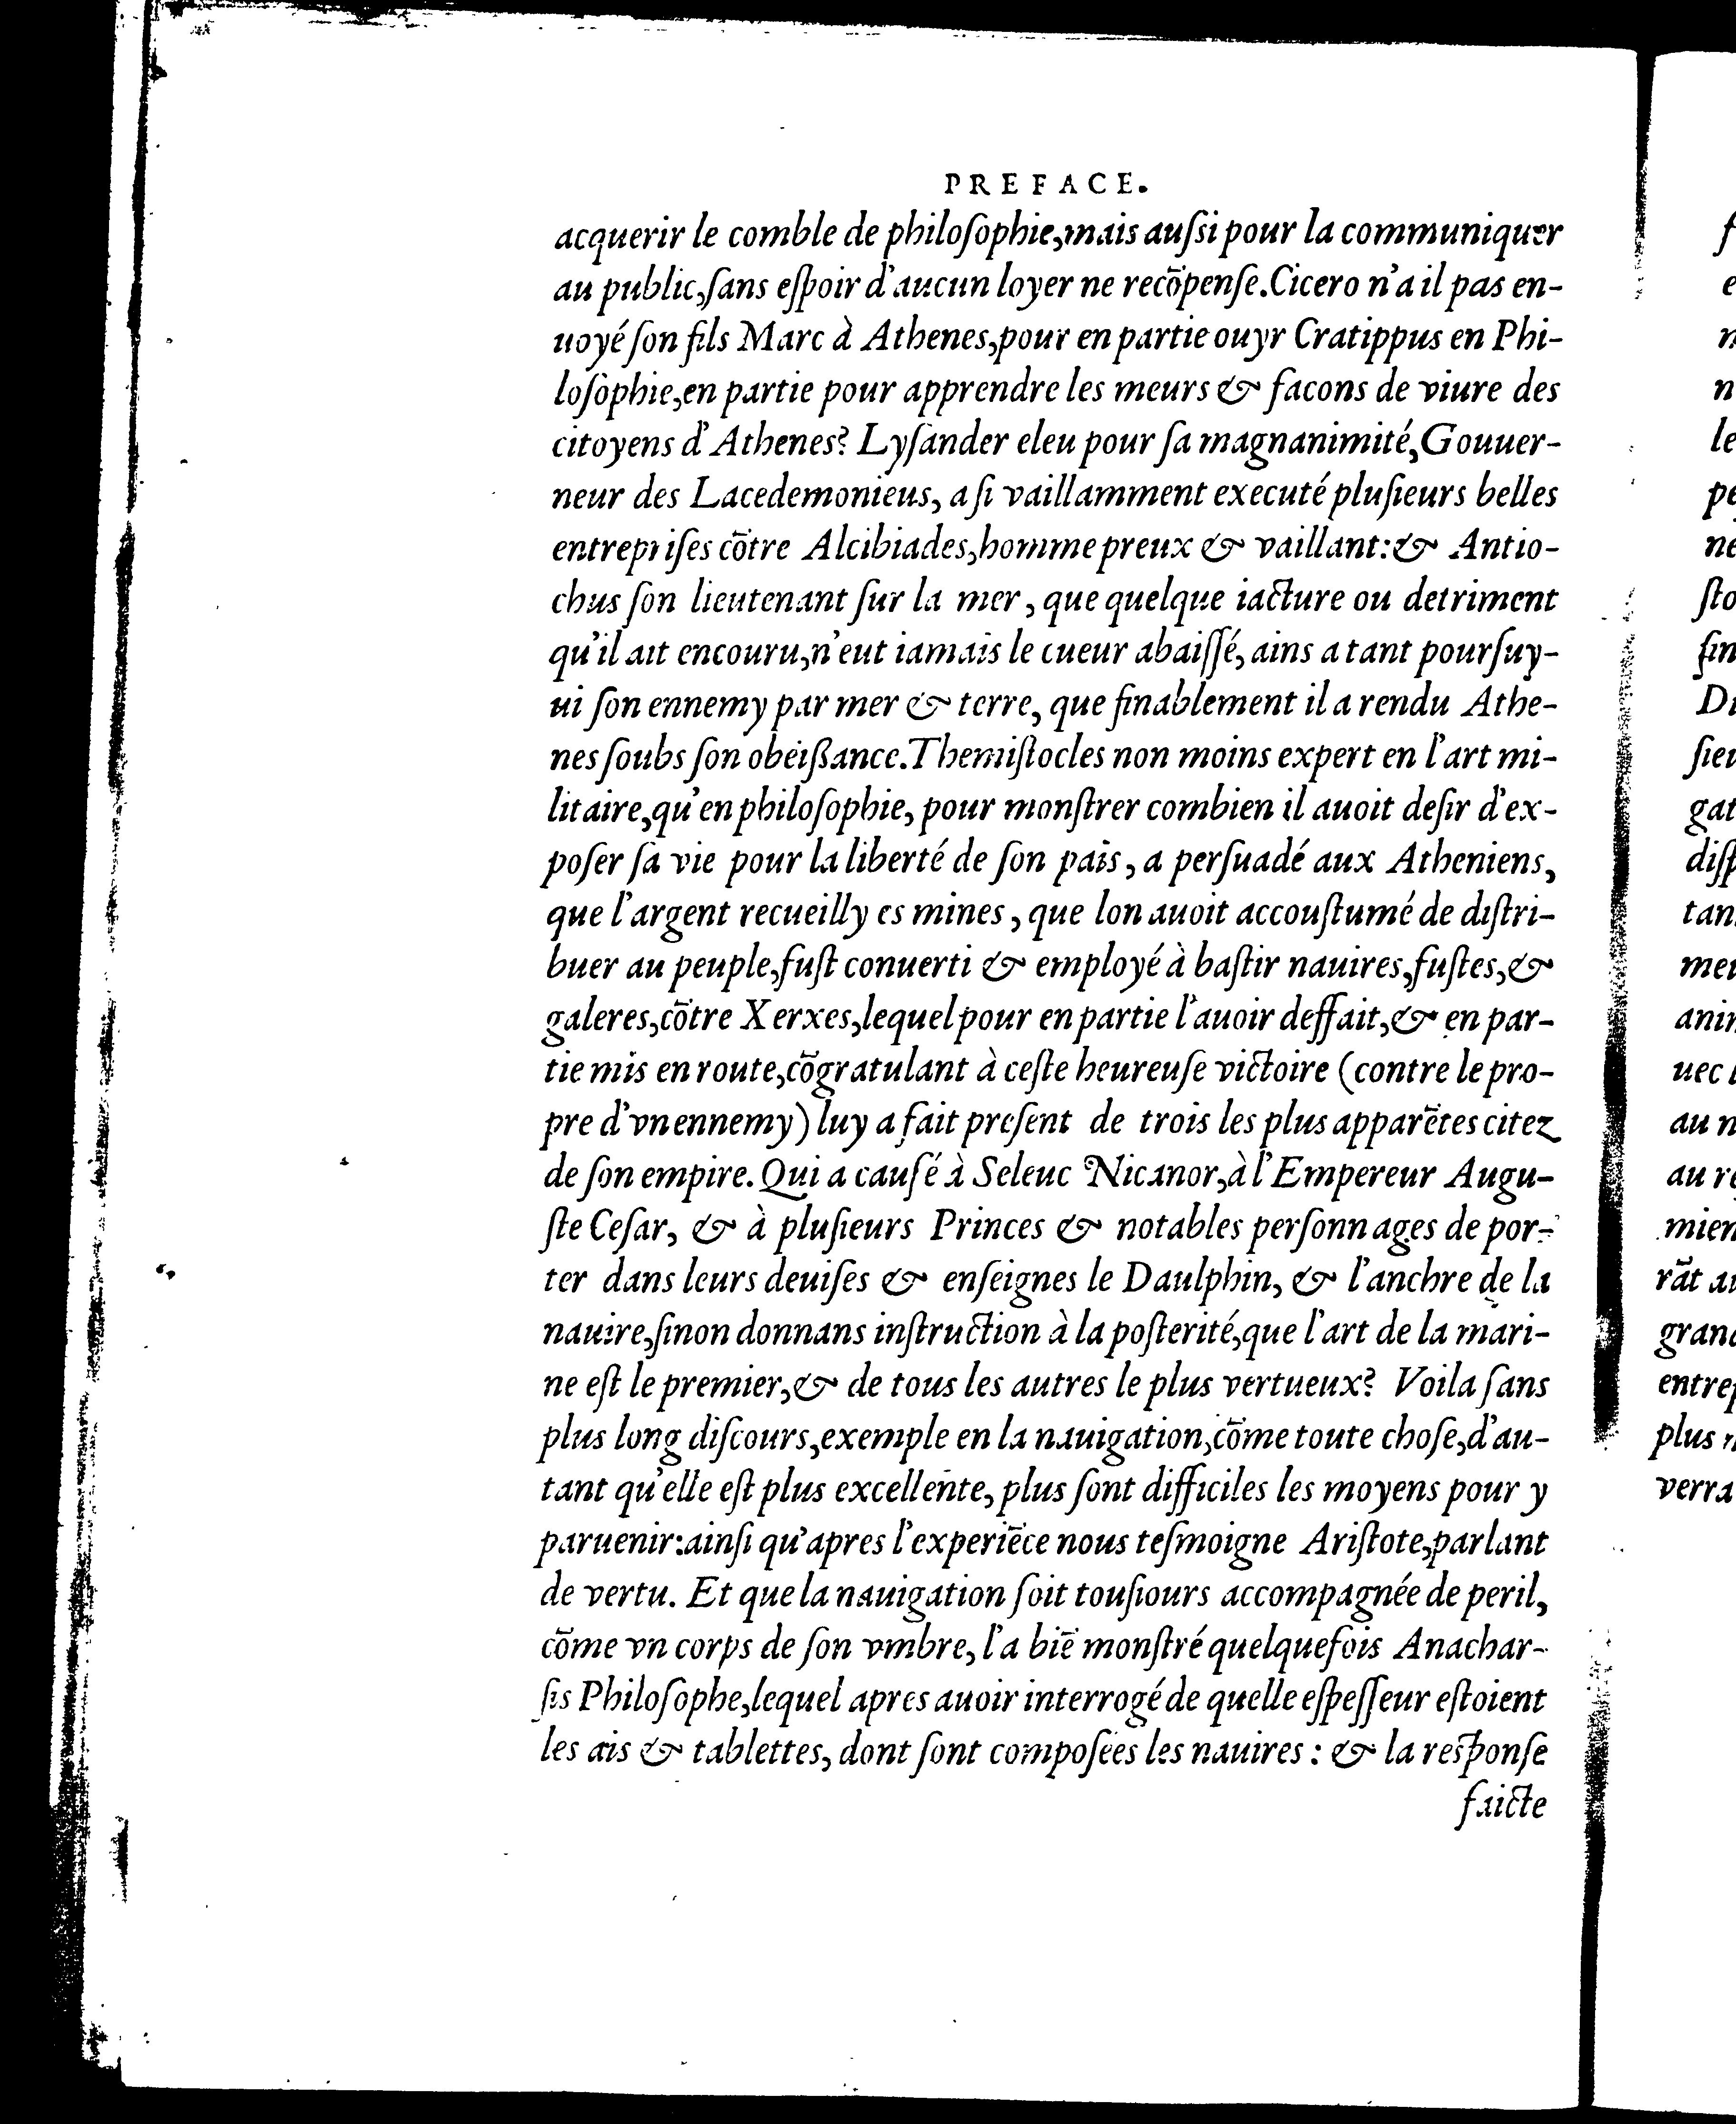 PREFACE.
acquerir le comble de philoſophie,mais auſsi pour la communiquer
au public,ſans eſpoir d'aucun loyer ne recōpenſe.Cicero n'a il pas en-
uoyé ſon fils Marc à Athenes,pour en partie ouyr Cratippus en Phi-
loſophie,en partie pour apprendre les meurs & facons de viure des
citoyens d'Athenes? Lyſander eleu pour ſa magnanimité,Gouuer-
neur des Lacedemonieus, a ſi vaillamment executé pluſieurs belles
entrepriſes cōtre Alcibiades,homme preux & vaillant:& Antio-
chus ſon lieutenant ſur la mer, que quelque iacture ou detriment
qu'il ait encouru,n'eut iamais le cueur abaiſſé, ains a tant pourſuy-
ui ſon ennemy par mer & terre, que finablement il a rendu Athe-
nes ſoubs ſon obeißance.Themiſtocles non moins expert en l'art mi-
litaire,qu'en philoſophie, pour monſtrer combien il auoit deſir d'ex-
poſer ſa vie pour la liberté de ſon païs, a perſuadé aux Atheniens,
que l'argent recueilly es mines, que lon auoit accouſtumé de diſtri-
buer au peuple,fuſt conuerti & employé à baſtir nauires,fuſtes,&
galeres,cōtre Xerxes,lequel pour en partie l'auoir deffait,& en par-
tie mis en route,cōgratulant à ceſte heureuſe victoire (contre le pro-
pre d'vn ennemy) luy a fait preſent de trois les plus apparētes citez
de ſon empire. Qui a cauſé à Seleuc Nicanor,à l'Empereur Augu-
ſte Ceſar, & à pluſieurs Princes & notables perſonnages de por-
ter dans leurs deuiſes & enſeignes le Daulphin, & l'anchre de la
nauire,ſinon donnans inſtruction à la poſterité,que l'art de la mari-
ne eſt le premier,& de tous les autres le plus vertueux? Voila ſans
plus long diſcours,exemple en la nauigation,cōme toute choſe,d'au-
tant qu'elle eſt plus excellente, plus ſont difficiles les moyens pour y
paruenir:ainſi qu'apres l'experiēce nous teſmoigne Ariſtote,parlant
de vertu. Et que la nauigation ſoit touſiours accompagnée de peril,
cōme vn corps de ſon vmbre, l'a biē monſtré quelquefois Anachar-
ſis Philoſophe,lequel apres auoir interrogé de quelle eſpeſſeur eſtoient
les ais & tablettes, dont ſont compoſées les nauires : & la reſponſe
faicte